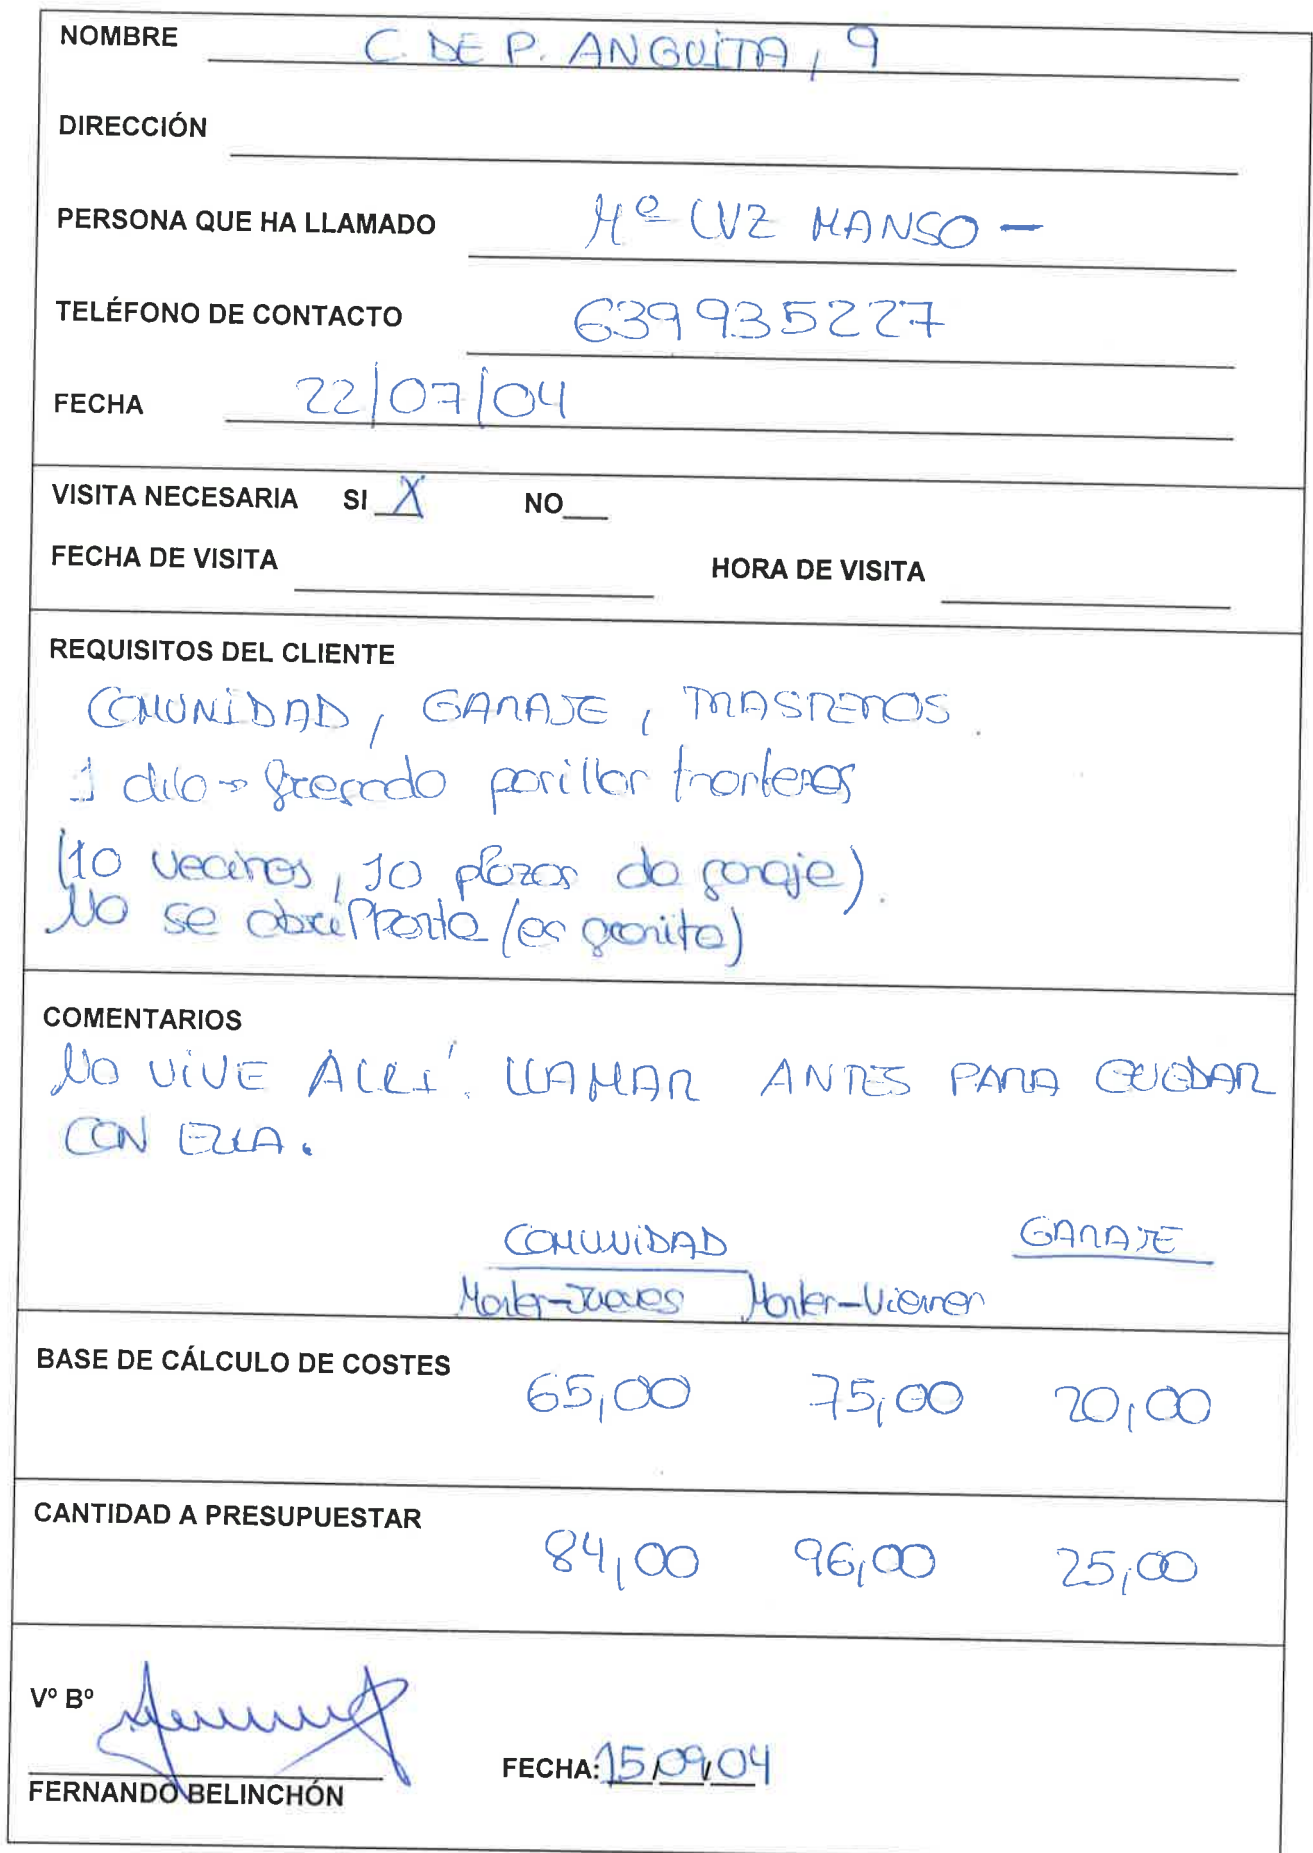 NOMBRE C. DE P. ANGUITA, 9
DIRECCIÓN
PERSONA QUE HA LLAMADO Mª LUZ MANSO -
TELÉFONO DE CONTACTO 639935227
FECHA 22/07/04
VISITA NECESARIA SI X NO
FECHA DE VISITA HORA DE VISITA
REQUISITOS DEL CLIENTE
COMUNIDAD, GARAJE, TRASTEROS
1 fregado pasillos trasteros
(10 vecinos, 10 plazas de garaje).
No se (es granito)
COMENTARIOS
NO VIVE ALLÍ. LLAMAR ANTES PARA QUEDAR
CON ELLA.
COMUNIDAD GARAJE
Martes-Jueves Martes-Viernes
BASE DE CÁLCULO DE COSTES 65,00 75,00 20,00
CANTIDAD A PRESUPUESTAR 84,00 96,00 25,00
Vº Bº
FERNANDO BELINCHÓN FECHA: 15/09/04